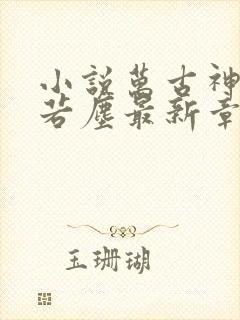 小說萬古神
若塵最新章
玉珊瑚